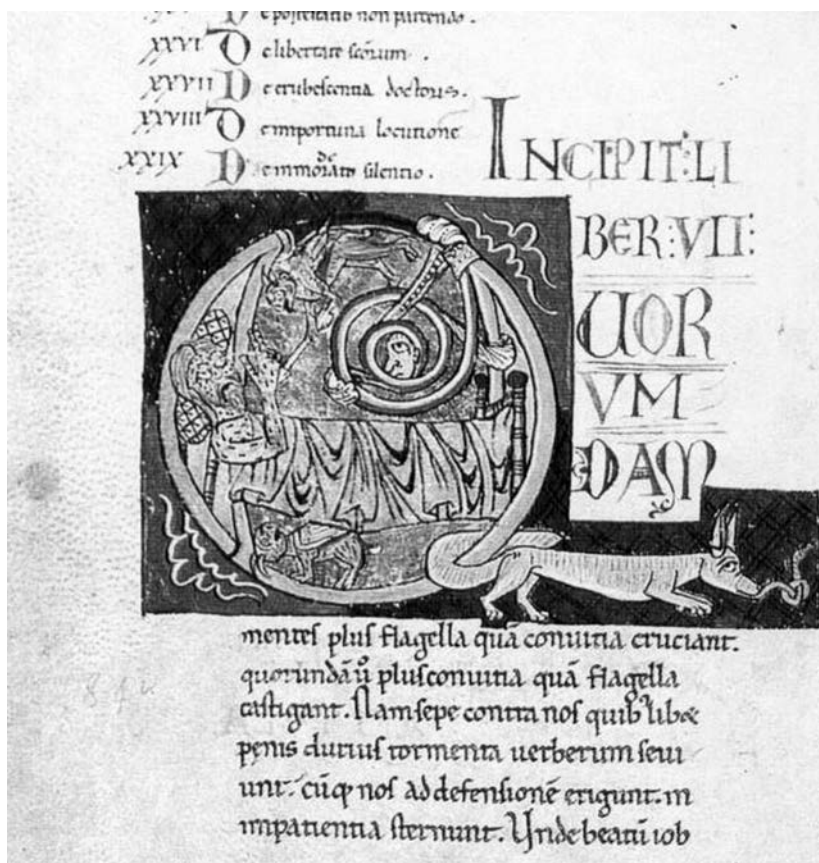 De potestatib non parcendo.
XXVI De libertate scōrum.
XXVII De erubescentia doctoris.
XXVIII De importuna locutione
XXIX De inmoderato silentio.
INCIPIT: LI
BER: VII:
QUOR
VM
DAM
mentes plus flagella quā conuitia cruciant.
quorundā ů plus conuitia quā flagella
castigant. Nam sepe contra nos quib'libꝫ
pęnis durius tormenta uerberum seui
unt. cūq; nos ad defensionē erigunt. in
impatientia sternunt. Unde beatū iob